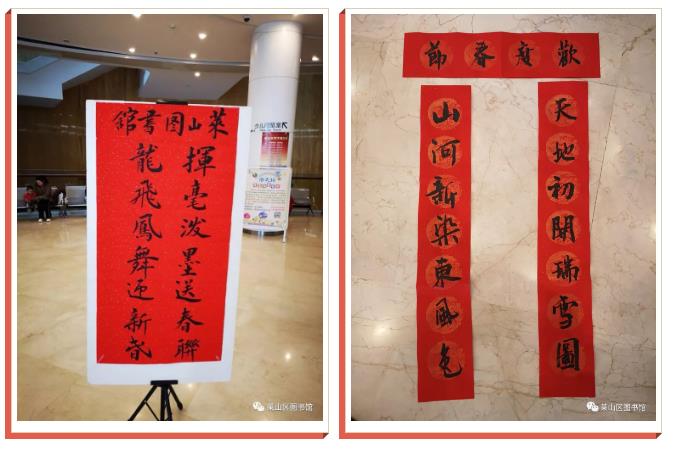 萊山图書館
揮毫泼墨送春聯
龍飛鳳舞迎新春
莱山区图书馆
歡度春節
天地初開瑞雪圖
山河新染東風色
莱山区图书馆